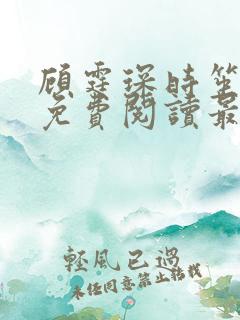 顾霆琛时笙
免费阅读最
轻风已过
未经同意禁止转载